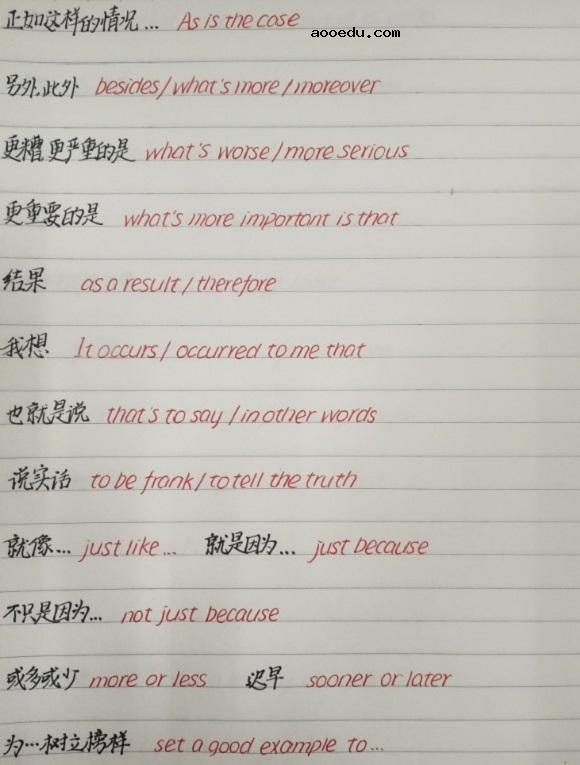 正如这样的情况... As is the case
aooedu.com
另外,此外 besides/what's more/moreover
更糟,更严重的是 what's worse/more serious
更重要的是 what's more important is that
结果 as a result/therefore
我想 It occurs/occurred to me that
也就是说 that's to say/in other words
说实话 to be frank/to tell the truth
就像... just like... 就是因为... just because
不只是因为... not just because
或多或少 more or less 迟早 sooner or later
为...树立榜样 set a good example to...